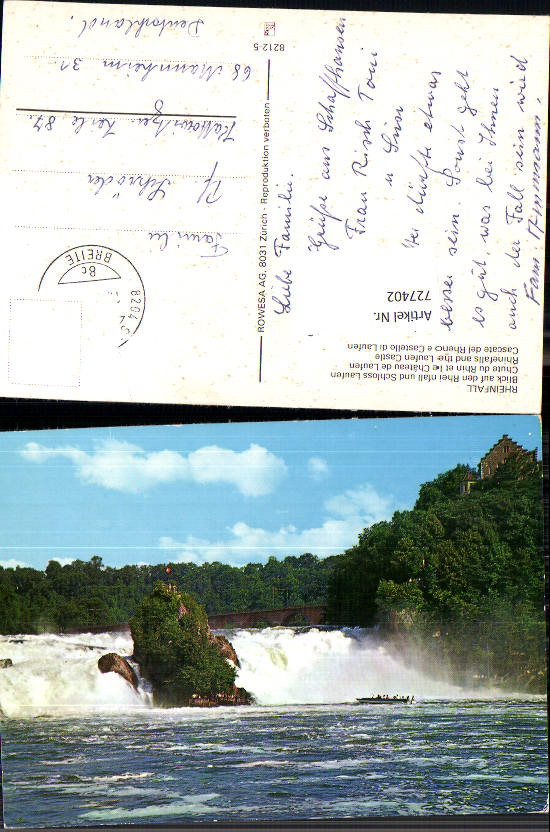 RHEINFALL
Blick auf den Rheinfall und Schloss Laufen
Chute du Rhin et le Château de Laufen
Rhinefalls and the Laufen Castle
Cascate del Rheno e Castello di Laufen
Artikel Nr.
727402
Liebe Familie.
Grüße aus Schaffhausen
Frau Risch Toni
u
Wetter dürfte etwas
besser sein. Sonst geht
es gut, was bei Ihnen
auch der Fall sein wird
Fam.
ROWESA AG, 8031 Zürich - Reproduktion verboten
8212-5
BREITE
8c
8204
Familie
Pf Schröder
87
68 Mannheim 31
Deutschland.